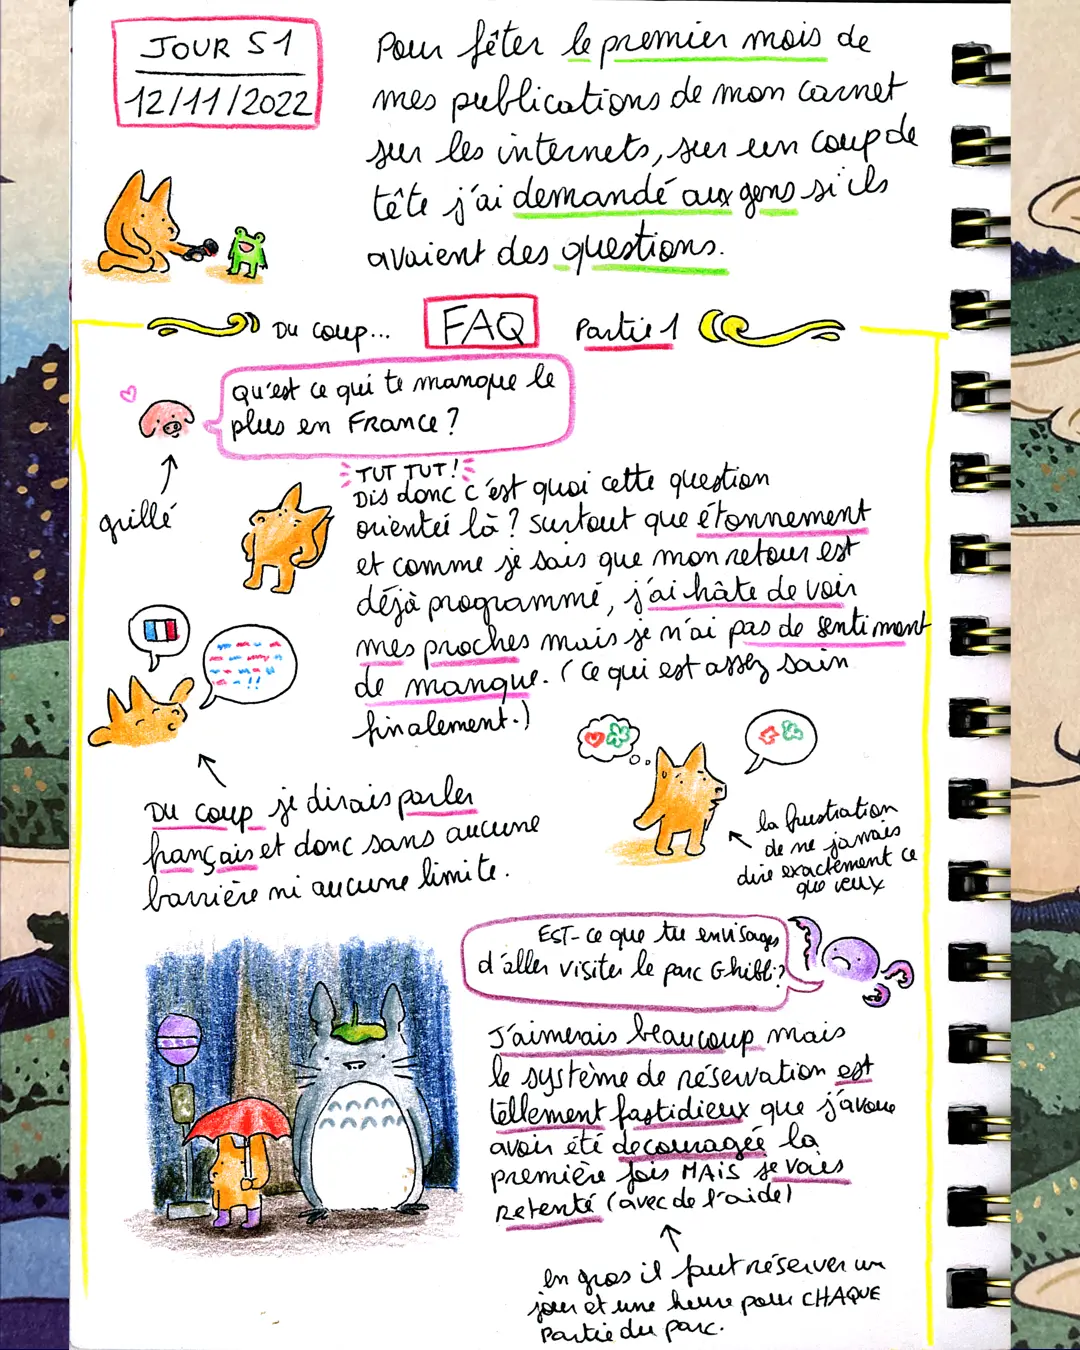 JOUR 51
12/11/2022
Pour fêter le premier mois de
mes publications de mon carnet
sur les internets, sur un coup de
tête j'ai demandé aux gens si ils
avaient des questions.
Du coup... FAQ Partie 1
Qu'est ce qui te manque le
plus en France ?
grillé
TUT TUT !
Dis donc c'est quoi cette question
orienteé là ? Surtout que étonnement
et comme je sais que mon retour est
déjà programmé, j'ai hâte de voir
mes proches mais je n'ai pas de sentiment
de manque. (Ce qui est assez sain
finalement.)
Du coup je dirais parler
français et donc sans aucune
barrière ni aucune limite.
la frustration
de ne jamais
dire exactement ce
que veux
EST-ce que tu envisages
d'aller visiter le parc Ghibli ?
J'aimerais beaucoup mais
le système de réservation est
tellement fastidieux que j'avoue
avoir été decouragée la
première fois MAIS je vais
retenté (avec de l'aide)
en gros il faut réserver un
jour et une heure pour CHAQUE
Partie du parc.